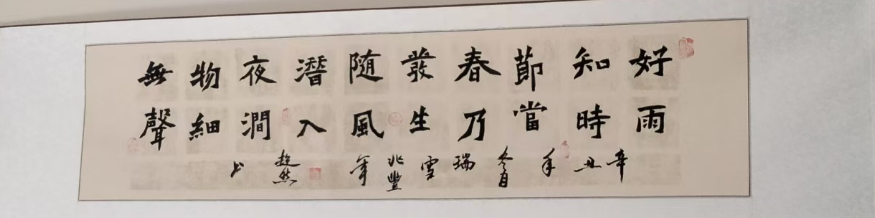 好雨
知時
節當
春乃
發生
随風
潛入
夜潤
物細
無聲
辛丑年冬月瑞雪兆豐年超然书